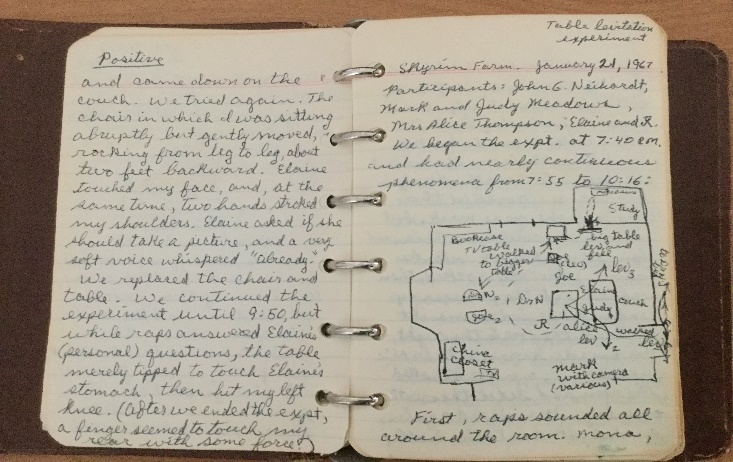 Positive
and came down on the
couch. We tried again. The
chair in which I was sitting
abruptly but gently moved,
rocking from leg to leg, about
two feet backward. Elaine
touched my face, and, at the
same time, two hands stroked
my shoulders. Elaine asked if she
should take a picture, and a very
soft voice whispered "already."
We replaced the chair and
table. We continued the
experiment until 9:50, but
while raps answered Elaine's
(personal) questions, the table
merely tipped to touch Elaine's
stomach, then hit my left
knee. (After we ended the expt,
a finger seemed to touch my
rear with some force.)
Table levitation
experiment
Skyrim Farm. January 21, 1967
Participants: John G. Neihardt,
Mark and Judy Meadows,
Mrs Alice Thompson, Elaine and R.
We began the expt. at 7:40 P.M.
and had nearly continuous
phenomena from 7:55 to 10:16:
Study
Bookcase
TV table
walked
to bigger
table
big table
lev. and
fell
(lev)
Joe
lev 3
Dr N
Elaine
Judy
couch
R
alice
lev
2
China
closet
TV
Mark
with camera
(various)
First, raps sounded all
around the room. Mona,